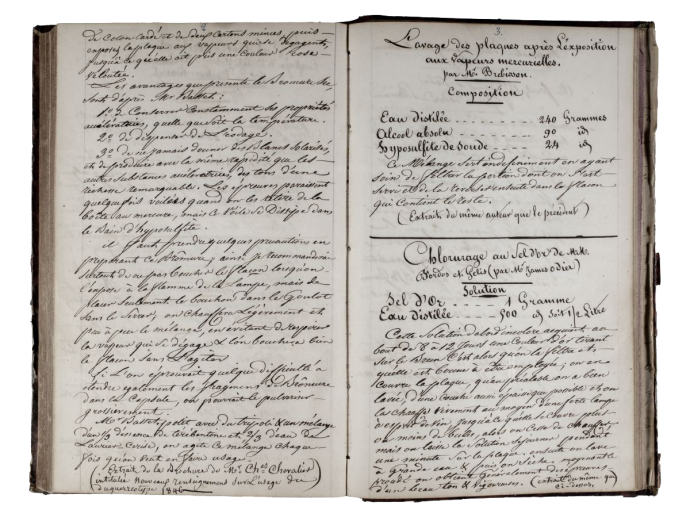 de coton cardé et de deux cartons minces, puis
exposez la plaque aux vapeurs qui se dégagent,
jusqu'à ce qu'elle ait pris une couleur Rose
Veloutée.
Les avantages que présente le Bromure
sont d'après Mr
1º de Conserver Constamment ses propriétés
accélératrices, quelle que soit la température.
2º de dispenser de l'iodage.
3º de ne jamais donner des blancs Solarisés,
et de produire avec la même rapidité que les
autres Substances accélératrices, des tons d'une
richesse remarquable. Les épreuves paraissent
quelquefois voilées quand on les retire de la
boîte au mercure, mais le Voile se dissipe dans
le Bain d'hyposulfite.
il faut prendre quelques precautions en
preparant ce Brômure, ainsi je recommanderai
surtout de ne pas boucher le flacon lorsqu'on
l'expose à la flamme de la Lampe, mais de
placer Seulement le bouchon dans le Goulot
Sans le Serrer; on Chauffera Légèrement et
peu à peu le mélange, en évitant de respirer
la vapeur qui se dégage & l'on bouchera bien
le flacon Sans l'agiter.
Si l'on éprouvait quelque difficulté à
étendre également les fragments de Brômure
dans la Capsule, on pourrait le pulvériser
grossièrement.
Mr polit avec du tripoli & un mélange
d'un 1/3 d'essence de Térébentine et 2/3 d'eau de
Laurier Cerise, on agite ce mélange Chaque
fois qu'on veut en faire usage.
(Extrait de la Brochure de Mr. Ch.es Chevalier
intitulée Nouveaux renseignements sur l'usage du
daguerréotype 1846)
3.
Lavage des plaques après l'exposition
aux Vapeurs mercurielles.
par Mr. Brebisson.
Composition
Eau distilée - - - - - 240 Grammes
Alcool absolu - - - - - 90 id
Hyposulfite de Soude - - - 24 id
Ce Mélange Sert indéfiniment en ayant
soin de filtrer la portion dont on s'est
Servi et de la reverser ensuite dans le flacon
qui Contient le reste.
(Extrait du même auteur que le précédent)
Chlorurage au Sel d'Or de M.M.
Fordos et Gélis (par Mr James Odier)
Solution
Sel d'Or - - - - - 1 Gramme
Eau distilée - - - - 500 id Soit 1/2 Litre
Cette Solution d'abord incolore acquiert au
bout de 8 à 12 jours une Couleur d'Or tirant
sur le Brun C'est alors qu'on la filtre et
qu'elle est bonne à être employée; on en
Couvre la plaque, qu'au préalable on a bien
lavée, d'une Couche aussi épaisse que possible et on
la chauffe vivement au moyen d'une forte lampe
d'esprit de Vin jusqu'à ce qu'elle se Couvre plus
ou moins de bulles, alors on Cesse de chauffer,
mais on laisse la Solution Séjourner pendant
une minute Sur la plaque, ensuite on lave
à grande eau & puis on Sèche par ce
procédé on obtient Généralement des épreuves
d'un beau ton & Vigoureuses. (extrait du même que
Ci-dessus.)